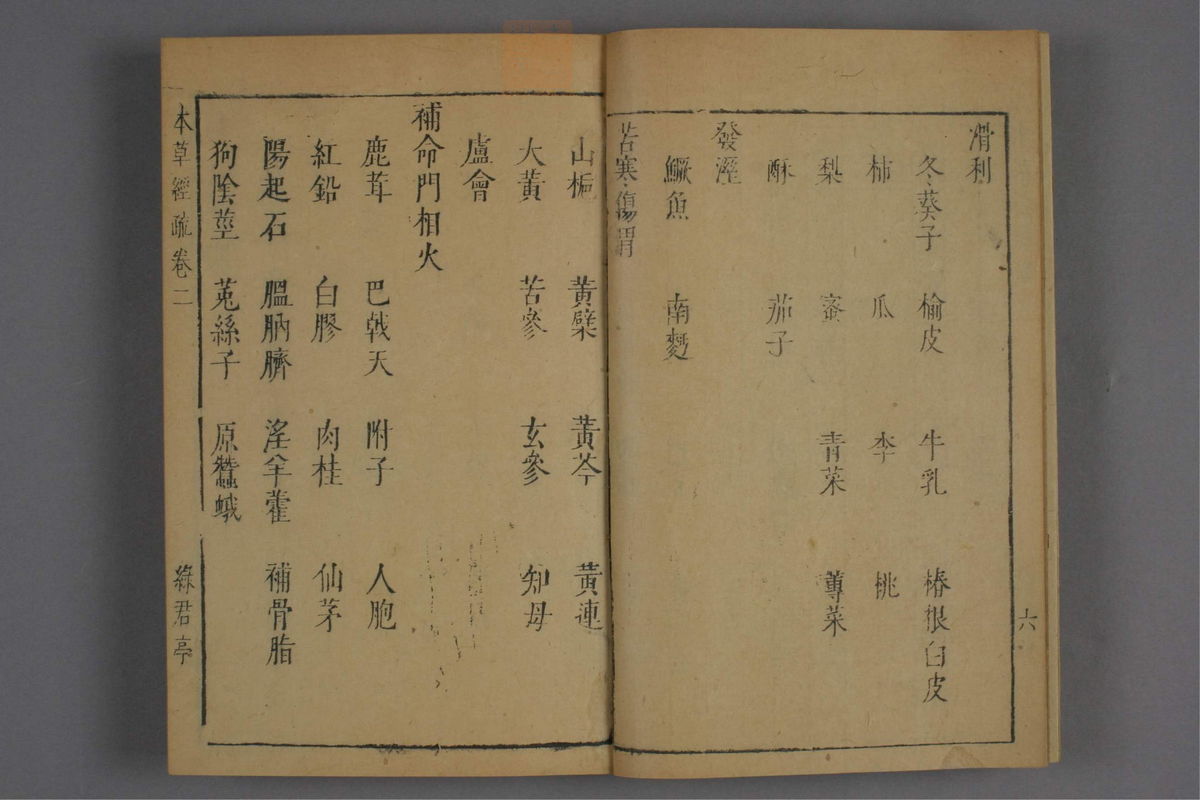 滑利
冬葵子 榆皮 牛乳 椿根白皮
柿 瓜 李 桃
梨 蜜 青菜 蓴菜
酥 茄子
發溼
鱖魚 南麪
苦寒傷胃
六
山梔 黃檗 黃芩 黃連
大黃 苦參 玄參 知母
盧會
補命門相火
鹿茸 巴戟天 附子 人胞
紅鉛 白膠 肉桂 仙茅
陽起石 膃肭臍 淫羊藿 補骨脂
狗陰莖 菟絲子 原蠶蛾
本草經疏卷二 綠君亭